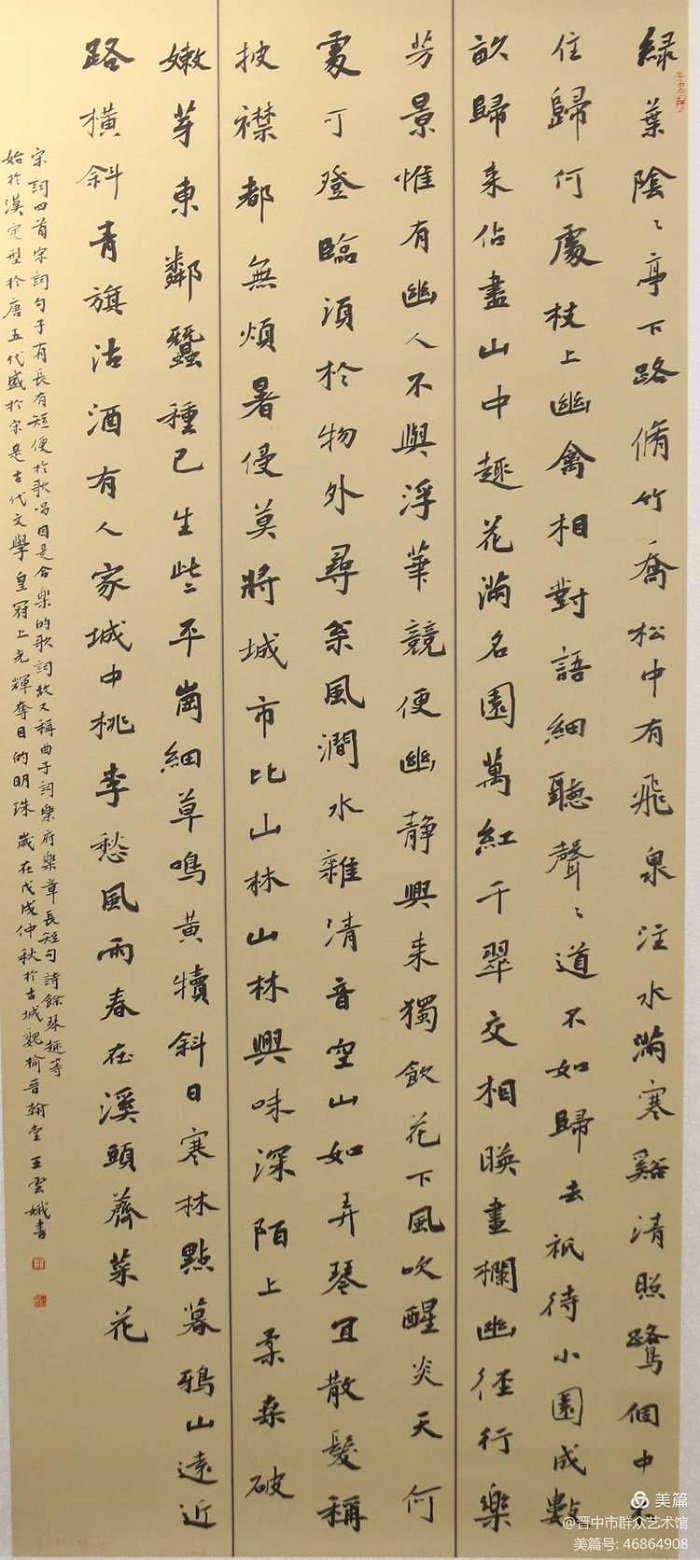 綠葉陰〻亭下路脩竹喬松中有飛泉注水滿寒谿清照鷺個中
住歸何處枝上幽禽相對語細聽聲〻道不如歸去祇待小園成數
畝歸来佔盡山中趣花滿名園萬紅千翠交相暎畫欄幽徑行樂
芳景惟有幽人不與浮華競便幽静興来獨飲花下風吹醒炎天何
處可登臨須於物外尋翁風澗水雜清音空山如弄琴宜散髮稱
披襟都無煩暑侵莫將城市比山林山林興味深陌上柔桑破
嫩芽東鄰蠶種已生些平崗細草鳴黃犢斜日寒林點暮鴉山遠近
路橫斜青旗沽酒有人家城中桃李愁風雨春在溪頭薺菜花
宋詞四首宋詞句子有長有短便於歌唱因是合樂的歌詞故又稱曲子詞樂府樂章長短句詩餘琴趣等
始於漢定型於唐五代盛於宋是古代文學皇冠上光輝奪目的明珠歲在戊戌仲秋於古城魏榆晉翰堂王雲娥書
美篇
@晋中市群众艺术馆
美篇号: 46864908